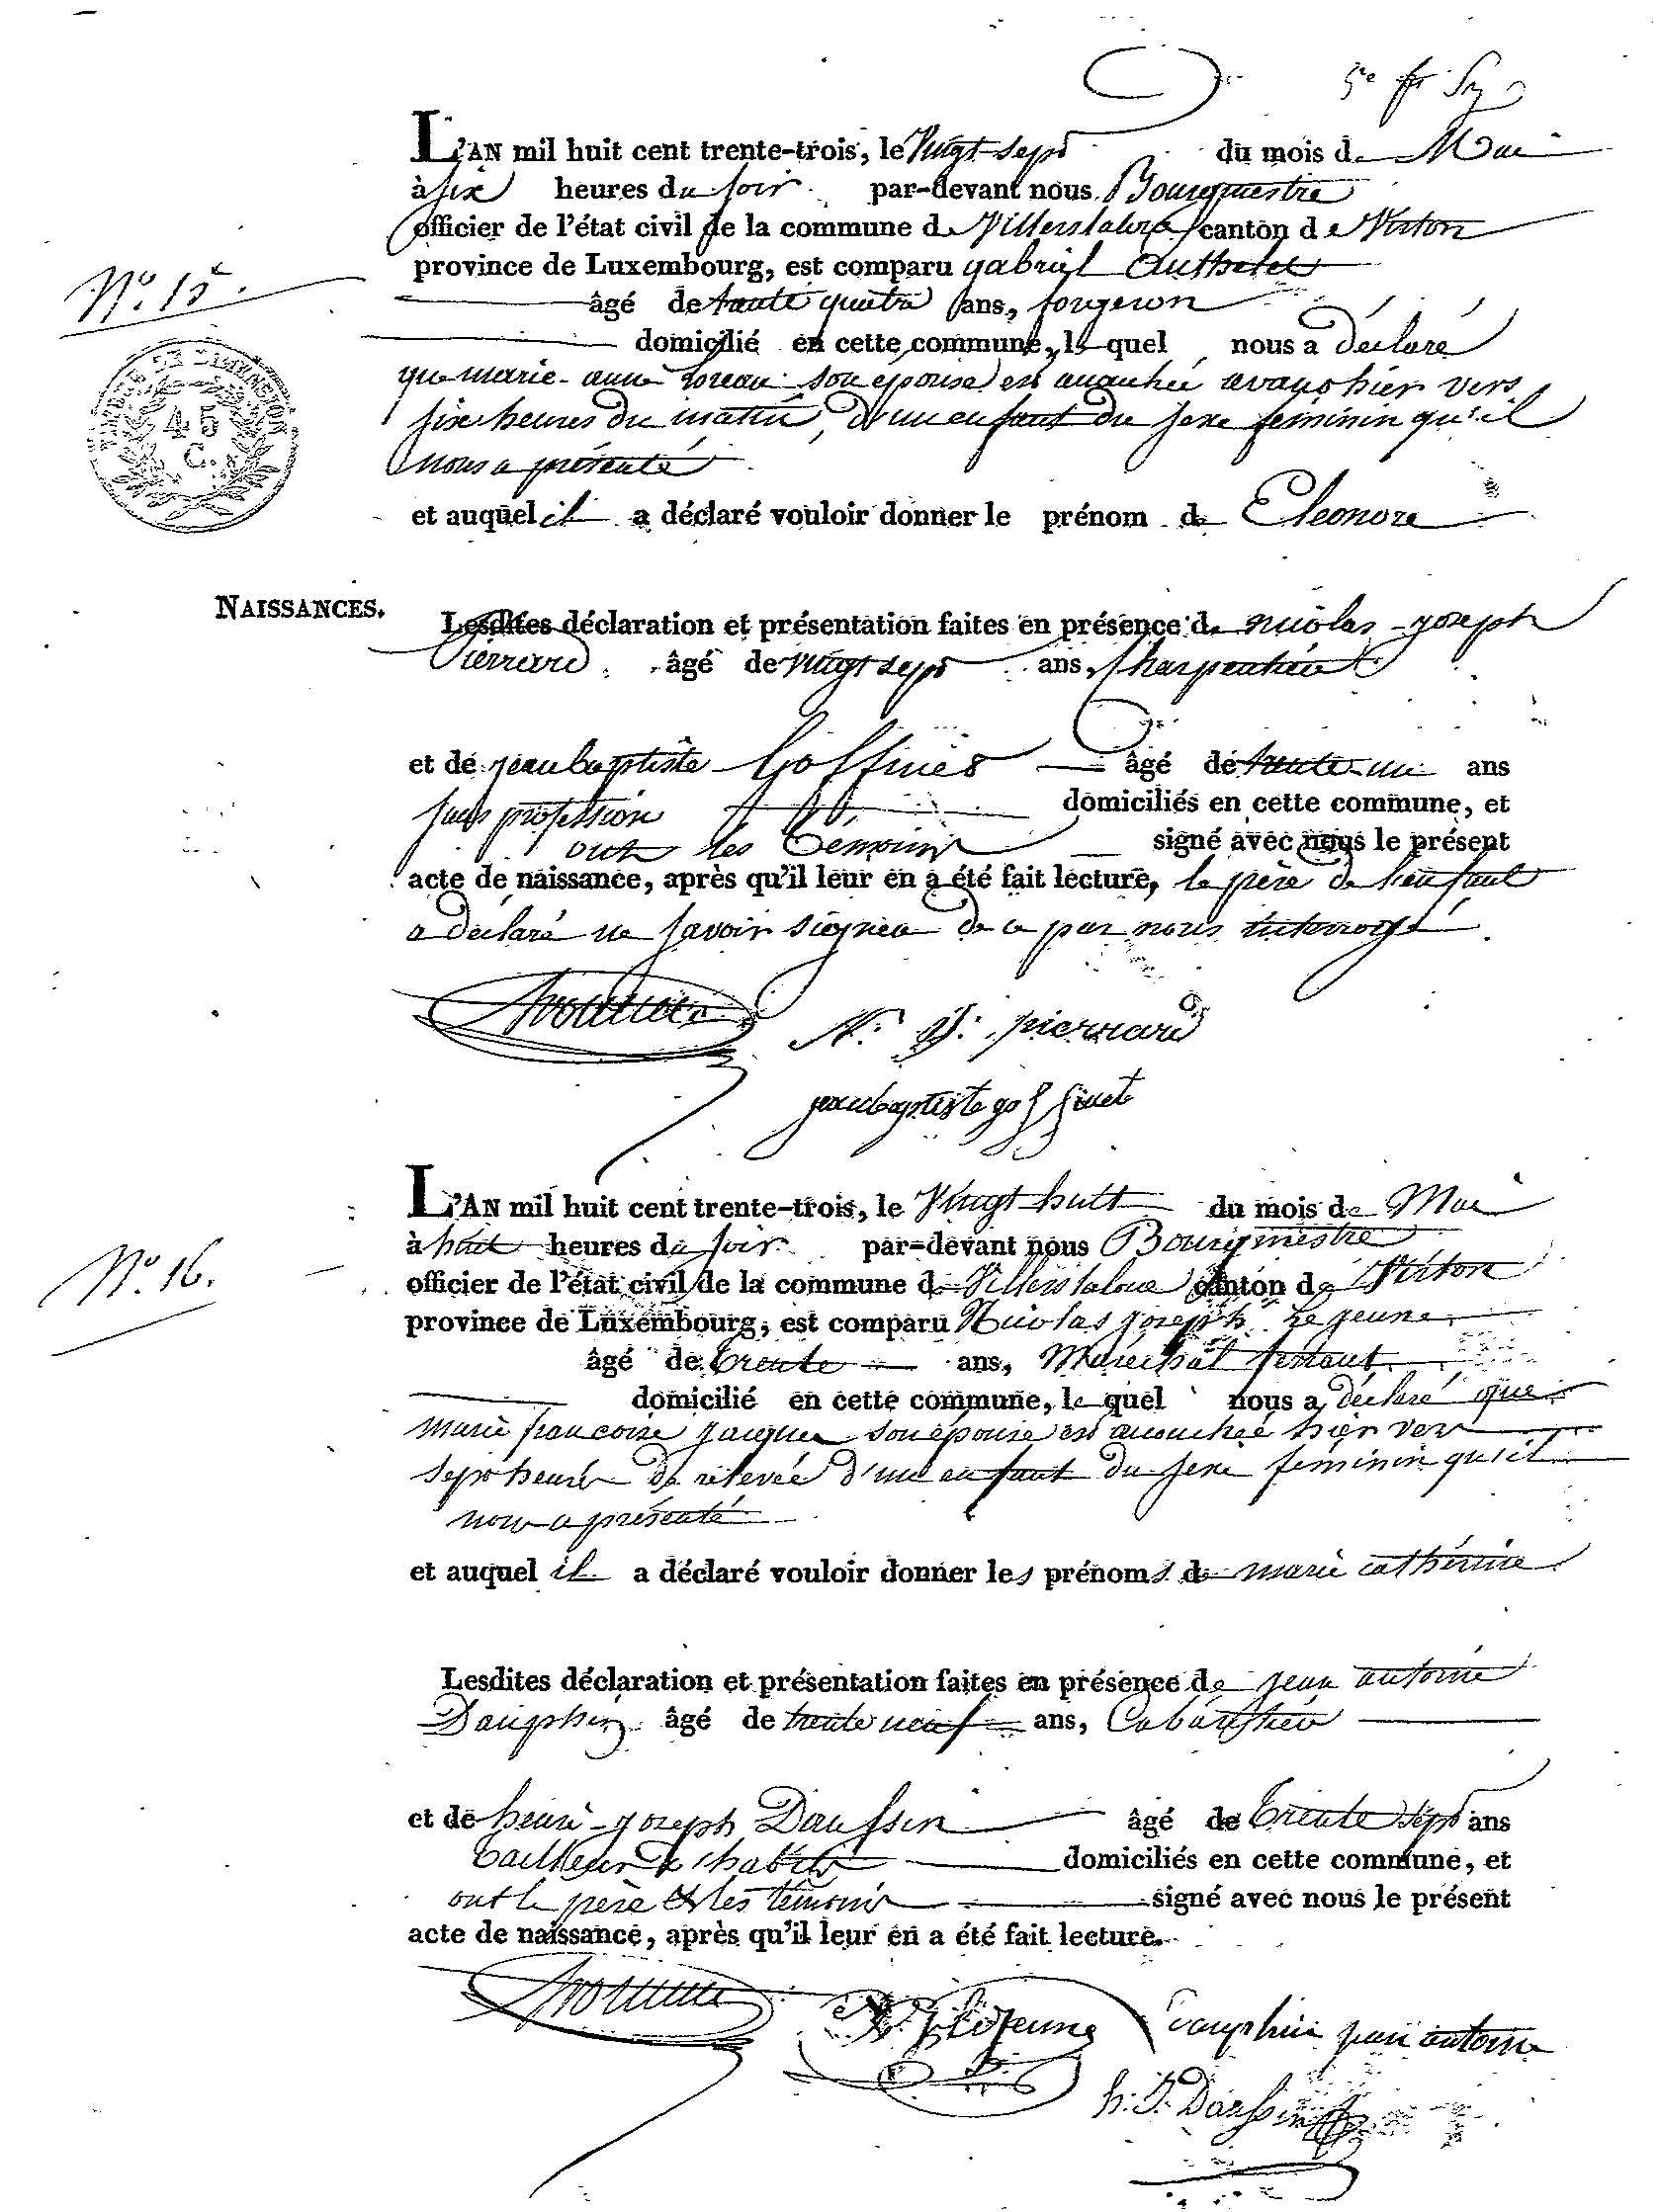 5e
L'AN mil huit cent trente-trois, le Vingt-sept du mois de Mai
à six heures du soir par-devant nous Bourgmestre
officier de l'état civil de la commune de Villerslaloue canton de Virton
N° 15.
province de Luxembourg, est comparu gabriel Authelet
âgé de trente quatre ans, forgeron
domicilié en cette commune, lequel nous a déclaré
TIMBRE DE DIMENSION
45
C.
que marie-anne son épouse est accouchée avant hier vers
six heures du matin, d'un enfant du sexe feminin qu'il
nous a présenté
et auquel il a déclaré vouloir donner le prénom de Eleonore
NAISSANCES.
Lesdites déclaration et présentation faites en présence de nicolas-joseph
Pierrard âgé de vingt sept ans, Charpentier
et de jean baptiste Goffinet âgé de trente-un ans
sans profession domiciliés en cette commune, et
ont les témoins signé avec nous le présent
acte de naissance, après qu'il leur en a été fait lecture, le père de l'enfant
a déclaré ne savoir signer de ce par nous interrogé
N. J. pierrard
jean baptiste goffinet
L'AN mil huit cent trente-trois, le Vingt-huit du mois de Mai
N° 16.
à huit heures du soir par-devant nous Bourgmestre
officier de l'état civil de la commune de Villerslaloue canton de Virton
province de Luxembourg, est comparu Nicolas joseph Le jeune
âgé de trente ans, Maréchal ferrant
domicilié en cette commune, lequel nous a déclaré que
marie françoise jacques son épouse est accouchée hier vers
sept heures de relevée d'un enfant du sexe féminin qu'il
nous a présenté
et auquel il a déclaré vouloir donner les prénoms de marie cathérine
Lesdites déclaration et présentation faites en présence de jean antoine
Dauphin âgé de trente neuf ans, Cabaretier
et de henri-joseph Daussin âgé de Trente sept ans
Tailleur d'habits domiciliés en cette commune, et
ont le père et les témoins signé avec nous le présent
acte de naissance, après qu'il leur en a été fait lecture.
N. J. LeJeune Dauphin jean antoine
h. J. Daussin